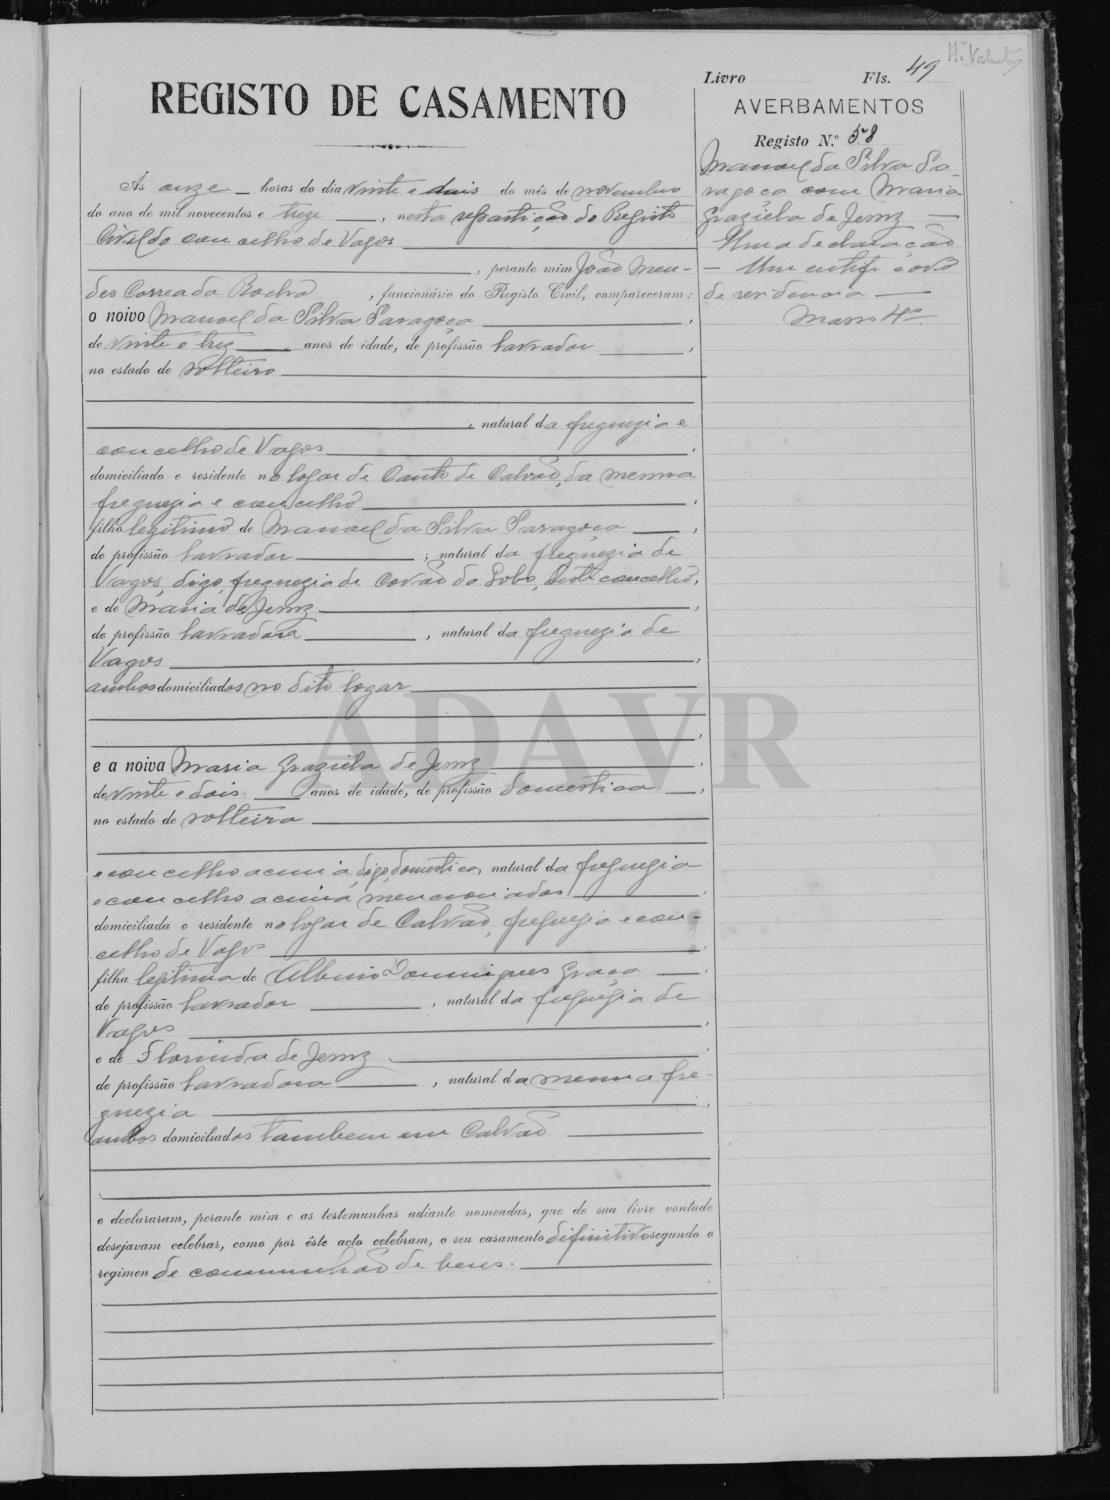 Livro Fls. 49
REGISTO DE CASAMENTO
AVERBAMENTOS
Registo N.º 58
Manoel da Silva Sa-
ragoça com Maria
Graziela de Jesuz
Uma declaração
Um certificado
de residencia
Às onze horas do dia vinte e dois do mês de novembro
do ano de mil novecentos e treze, nesta repartição do Registo
Civil do concelho de Vagos
, perante mim João Men-
des Correa da Rocha, funcionário do Registo Civil, compareceram:
o noivo Manoel da Silva Saragoça,
de vinte e trez anos de idade, de profissão lavrador,
no estado de solteiro
, natural da freguezia e
concelho de Vagos,
domiciliado e residente no logar de Canto de Calvão, da mesma
freguezia e concelho,
filho legitimo de Manoel da Silva Saragoça,
de profissão lavrador, natural da freguezia de
Vagos, digo, freguezia de Covão do Lobo, deste concelho,
e de Maria de Jesuz,
de profissão lavradora, natural da freguezia de
Vagos,
ambos domiciliados no dito logar
,
e a noiva Maria Graziela de Jesuz,
de vinte e dois anos de idade, de profissão domestica,
no estado de solteira
e concelho acima, digo, domestica, natural da freguezia
e concelho acima mencionados,
domiciliada e residente no logar de Calvão, freguezia e con-
celho de Vagos,
filha legitima de Albino Domingues Graça,
de profissão lavrador, natural da freguezia de
Vagos,
e de Florinda de Jesuz,
de profissão lavradora, natural da mesma fre-
guezia,
ambos domiciliados tambem em Calvão
e declararam, perante mim e as testemunhas adiante nomeadas, que de sua livre vontade
desejavam celebrar, como por êste acto celebram, o seu casamento difinitivo segundo o
regimen de communhão de bens.
ADAVR